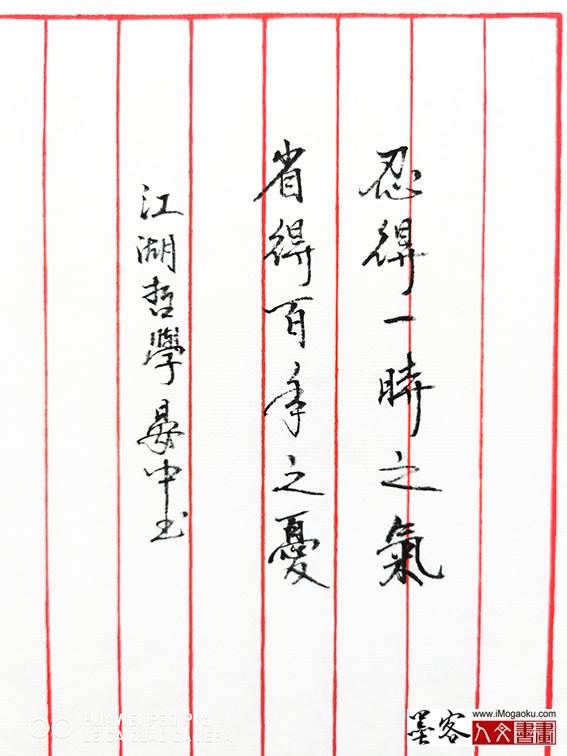 忍得一時之氣
省得百年之憂
江湖哲學晏中书
HUAWEI P30 Pro
LEICA QUAD CAMERA
www.iMogaoku.com
墨客
人文書畫